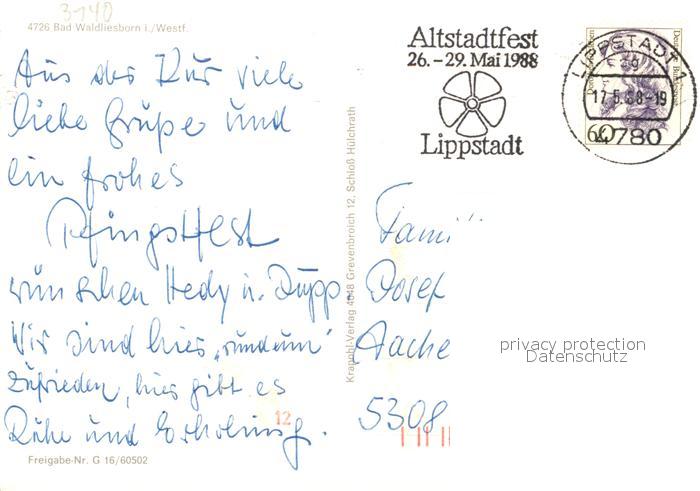 3-140
4726 Bad Waldliesborn i./Westf.
Aus der Kur viele
liebe Grüße und
ein frohes
Pfingstfest
wünschen Hedy u. Jupp.
Wir sind hier „rundum"
zufrieden, hier gibt es
Ruhe und Erholung.
12
Freigabe-Nr. G 16/60502
Krapohl-Verlag 4048 Grevenbroich 12, Schloß Hülchrath
Altstadtfest
26. – 29. Mai 1988
Lippstadt
LIPPSTADT 1
17.5.88-19
4780
60
Deutsche Bundespost
Fami
Josef
Aache
5308
privacy protection
Datenschutz